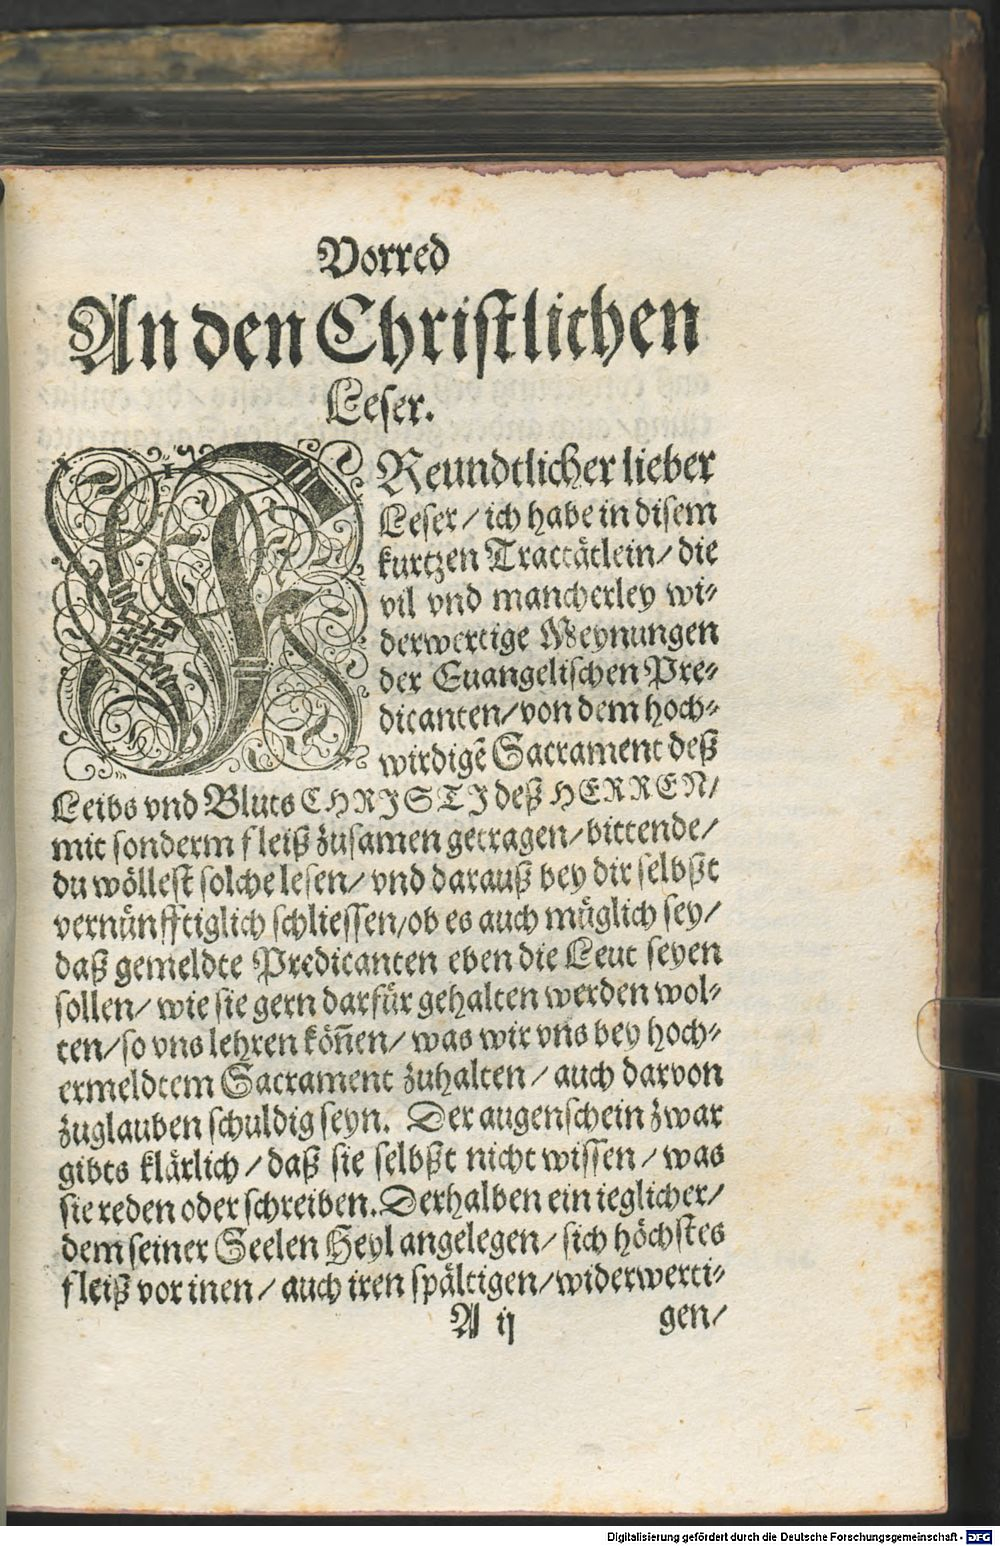 Vorred
An den Christlichen
Leser.
FReundtlicher lieber
Leser / ich habe in disem
kurtzen Tractätlein / die
vil vnd mancherley wi-
derwertige Meynungen
der Euangelischen Pre-
dicanten / von dem hoch-
wirdigẽ Sacrament deß
Leibs vnd Bluts CHRISTI deß HERREN /
mit sonderm fleiß zusamen getragen / bittende /
du wöllest solche lesen / vnd darauß bey dir selbßt
vernünfftiglich schliessen / ob es auch müglich sey /
daß gemeldte Predicanten eben die Leut seyen
sollen / wie sie gern darfür gehalten werden wol-
ten / so vns lehren köñen / was wir vns bey hoch-
ermeldtem Sacrament zuhalten / auch darvon
zuglauben schuldig seyn. Der augenschein zwar
gibts klärlich / daß sie selbßt nicht wissen / was
sie reden oder schreiben. Derhalben ein ieglicher /
dem seiner Seelen Heyl angelegen / sich höchstes
fleiß vor inen / auch iren spältigen / widerwerti-
A ij gen /
Digitalisierung gefördert durch die Deutsche Forschungsgemeinschaft - DFG